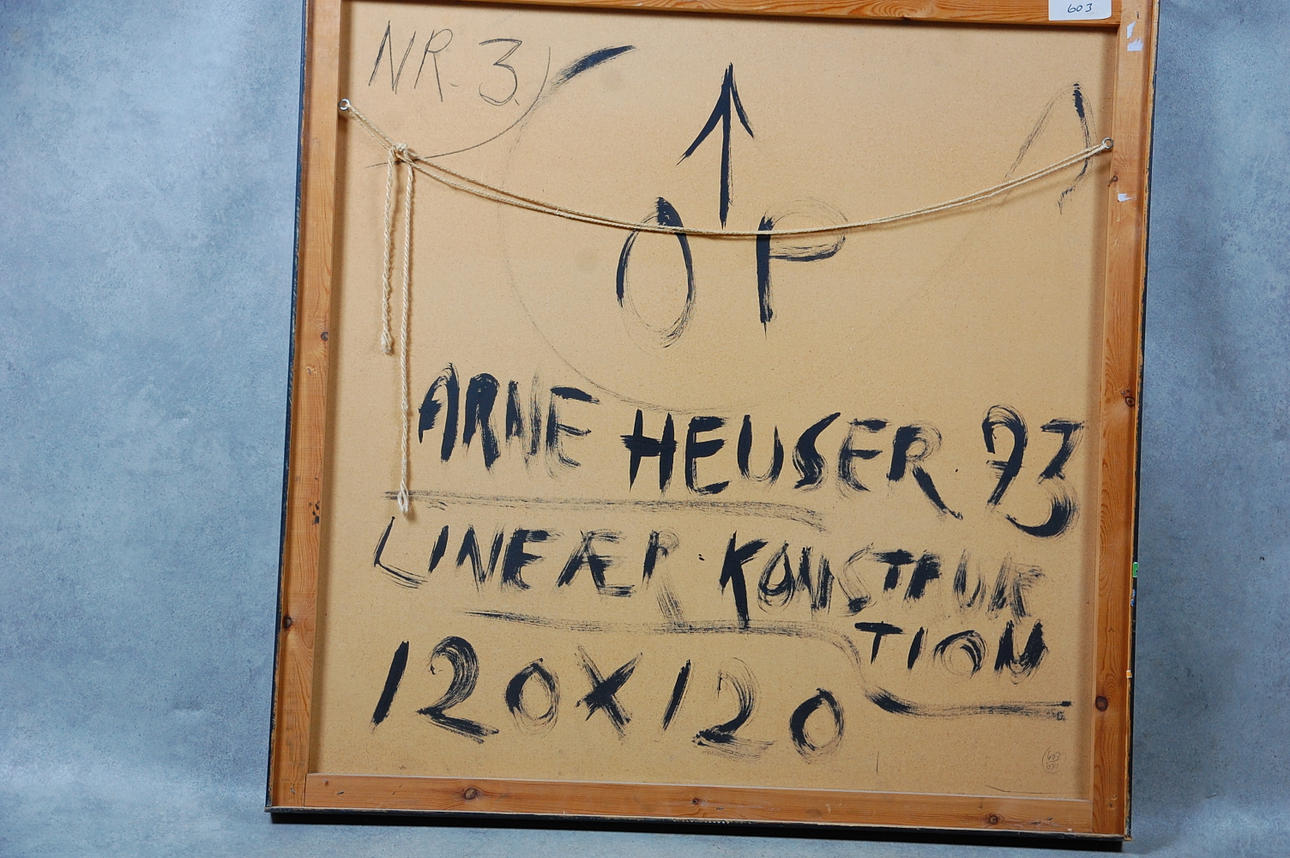 603
NR. 3.
OP
ARNE HEUSER 93
LINEÆR KONSTRUK
TION
120X120